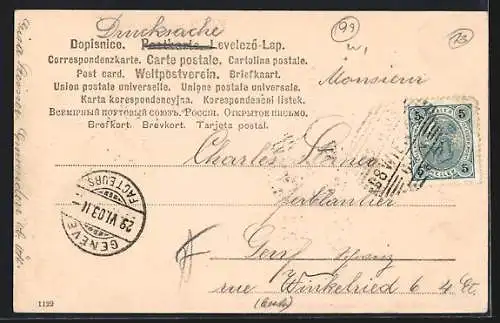 Drucksache
Dopisnice. Postkarte. Levelező-Lap.
Correspondenzkarte. Carte postale. Cartolina postale.
Post card. Weltpostverein. Briefkaart.
Union postale universelle. Unione postale universale.
Karta korespondencyjna. Korespondenční lístek.
Всемірный почтовый союзъ. Россія. Открытое письмо.
Brefkort. Brévkort. Tarjeta postal.
99
Monsieur
5 5
5 5
HELLER
WIEN
Charles
Genf Schweiz
rue Winkelried 6 4
GENÈVE
29.VI.03.11
FACTEURS
1122